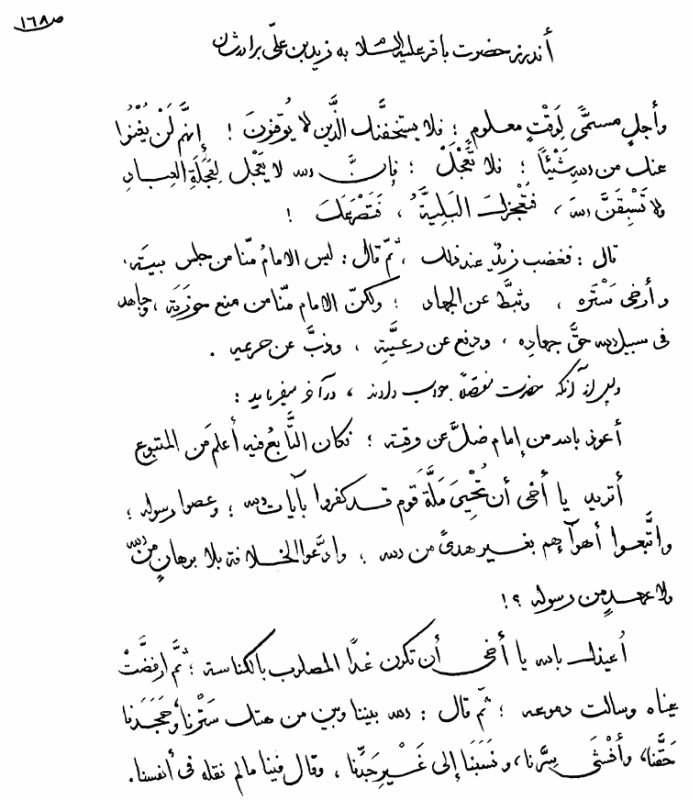 ص ١٦٨
أندرز حضرت باقر عليه السّلام به زيد بن علىّ برادرشان
وأجلٍ مسمًّى لِوَقْتٍ معلوم ؛ فلا يستخفنَّك الذَّين لا يُوقِنونَ ! إنَّهم لَنْ يُغْنُوا
عنك من الله شَيْئاً ؛ فلا تَعْجَلْ ؛ فإنَّ الله لا يَعْجَل لِعَجَلَةِ العِبادِ
ولا تَسْبِقَنَّ الله ، فتُعْجِزَك البَلِيَّةُ ، فَتَصْرَعَكَ !
قال : فغضب زيدٌ عند ذلك ، ثمّ قال : ليس الامامُ منّا من جلس بيته،
وأرخى سَتْرَه ، وثبطَّ عن الجهاد ؛ ولكنّ الامام منّا من منع حوزَتَه ، وجاهد
فى سبيل الله حقَّ جهادِه ، ودفع عن رعيَّتِه ، وذبَّ عن حريمه .
وپس از آنكه حضرت مفصّلاً جواب دادند ، در آخر ميفرمايد :
أعوذ بالله من إمام ضلَّ عن وقتِه ؛ فكان التَّابعُ فيه أعلم من المتبوع
أتريد يا أخى أن تُحْيِىَ مَلَّةَ قوم قد كفروا بآيات الله ؛ وعصوا رسوله ؛
واتَّبعوا أهوآءهم بغير هدىً من الله ؛ وادَّعوا الخلافة بلا برهانٍ من الله
ولا عهدٍ من رسوله ؟!
اُعيذك بالله يا أخى أن تكون غدًا المصلوب بالكناسة ؛ ثمَّ ارفضَّتْ
عيناه وسالت دموعه ؛ ثمّ قال : الله بيننا وبين من هتك سَتْرنا، وجَحَدَنا
حقَّنا، وأفْشَى سِرَّنا، ونَسَبَنَا إلى غَيْرِ جَدِّنا ، وقال فينا مالم نقله فى أنفسنا.